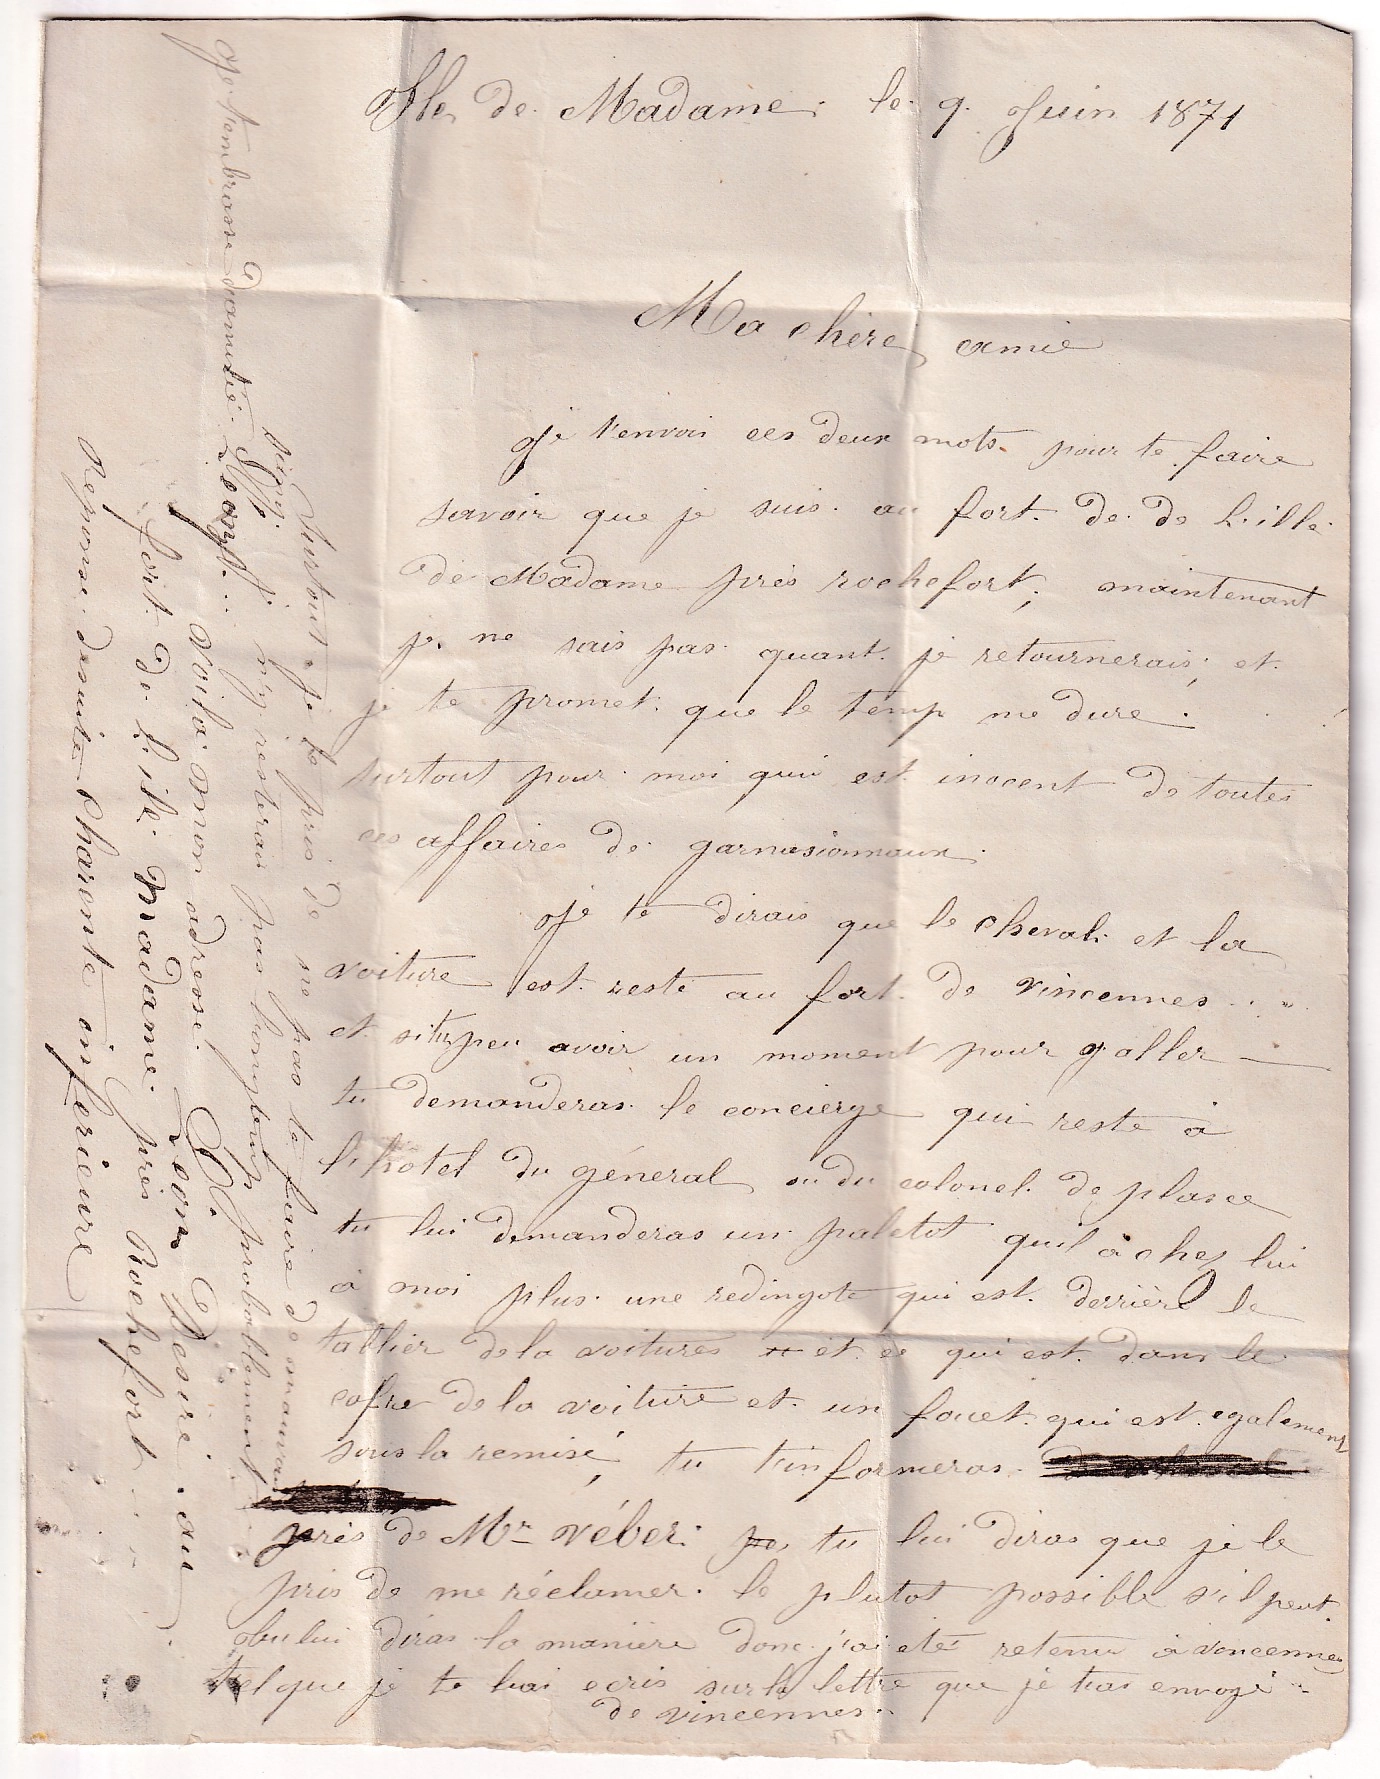 Ile de Madame le 9 Juin 1871
Ma chère amie
Je t'envoi ces deux mots pour te faire
savoir que je suis au fort de de L'ille
de Madame près rochefort, maintenant
je ne sais pas quant je retournerais, et
je te promet que le temp me dure
surtout pour moi qui est inocent de toutes
ces affaires de garnasionnaux
Je te dirais que le cheval et la
voiture est resté au fort de vincennes
et si tu peu avoir un moment pour y aller
tu demanderas le concierge qui reste à
l'hôtel du géneral ou du colonel de plasce
tu lui demanderas un paletot qu'il à chez lui
à moi plus une redingote qui est derrière le
tablier de la voitures et ce qui est dans le
cofre de la voiture et un fouet qui est egalement
sous la remise, tu t'informeras
près de Mr véber tu lui diras que je le
pris de me réclamer le plutot possible s'il peut.
tu lui diras la manière donc j'ai eté retenu à vincennes
tel que je te lais ecris sur la lettre que je t'ais envoyé
de vincennes.
Surtout je te pris de ne pas te faire de mauvai
sang. je n'y resterai pas longtemp probablement
Je t'embrasse d'amitié Léon
voila mon adresse. Léon Desiré au
fort de l'ile Madame près Rochefort
Réponse desuite Charente inferieure